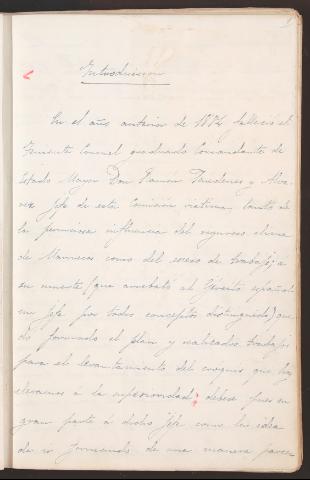 Introduccion
En el año anterior de 1884 falleció el
Teniente Coronel graduado Comandante de
Estado Mayor Don Ramón y Alva
rez Jefe de esta Comisión victima tanto de
la perniciosa influencia del riguroso clima
de Marruecos como del exceso de trabajo; á
su muerte (que arrebató al Ejército español
un Jefe por todos conceptos distinguido) que
do formado el plan y realizados trabajos
para el levantamiento del croquis que hoy
elevamos á la superioridad; debese pues en
gran parte á dicho Jefe como la idea
de ir formando de una manera